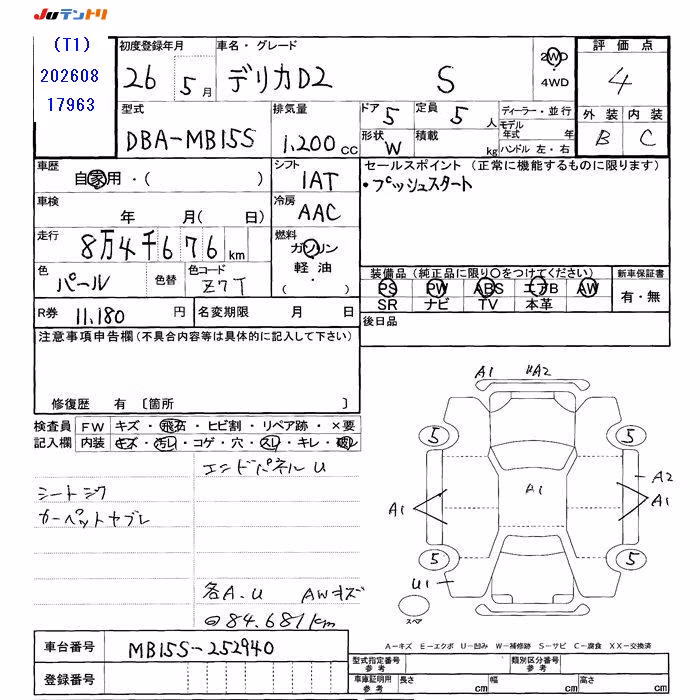 Juテントリ
(T1)
202608
17963
初度登録年月
26 5月
車名・グレード
デリカD2 S
2WD
・
4WD
評価点
4
外装 内装
B C
型式
DBA-MB15S
排気量
1,200cc
ドア 5
定員 5人
形状 W
積載 kg
ディーラー・並行
モデル年式 年
ハンドル 左・右
車歴
自家用・( )
シフト
1AT
セールスポイント (正常に機能するものに限ります)
・プッシュスタート
車検
年 月(日)
冷房
AAC
走行
8万4千676km
燃料
ガソリン
軽油
・( )
色
パール
色替
色コード
Z7T
装備品 (純正品に限り○をつけてください)
PS PW ABS エアB AW
SR ナビ TV 本革
新車保証書
有・無
R券 11,180円
名変期限 月 日
後日品
注意事項申告欄 (不具合内容等は具体的に記入して下さい)
修復歴 有 〔箇所 〕
検査員記入欄
FW キズ・飛石・ヒビ割・リペア跡・×要
内装 キズ・汚レ・コゲ・穴・スレ・キレ・破レ
エンドパネル U
シートシワ
カーペットヤブレ
各A.U AWキズ
84.681km
A1 A2
5 5
A1 A1 A2 A1
5 5
U1
スペア
車台番号 MB15S-252940
登録番号
A-キズ E-エクボ U-凹み W-補修跡 S-サビ C-腐食 XX-交換済
型式指定番号 参考
類別区分番号 参考
車庫証明用 参考
長さ cm 幅 cm 高さ cm